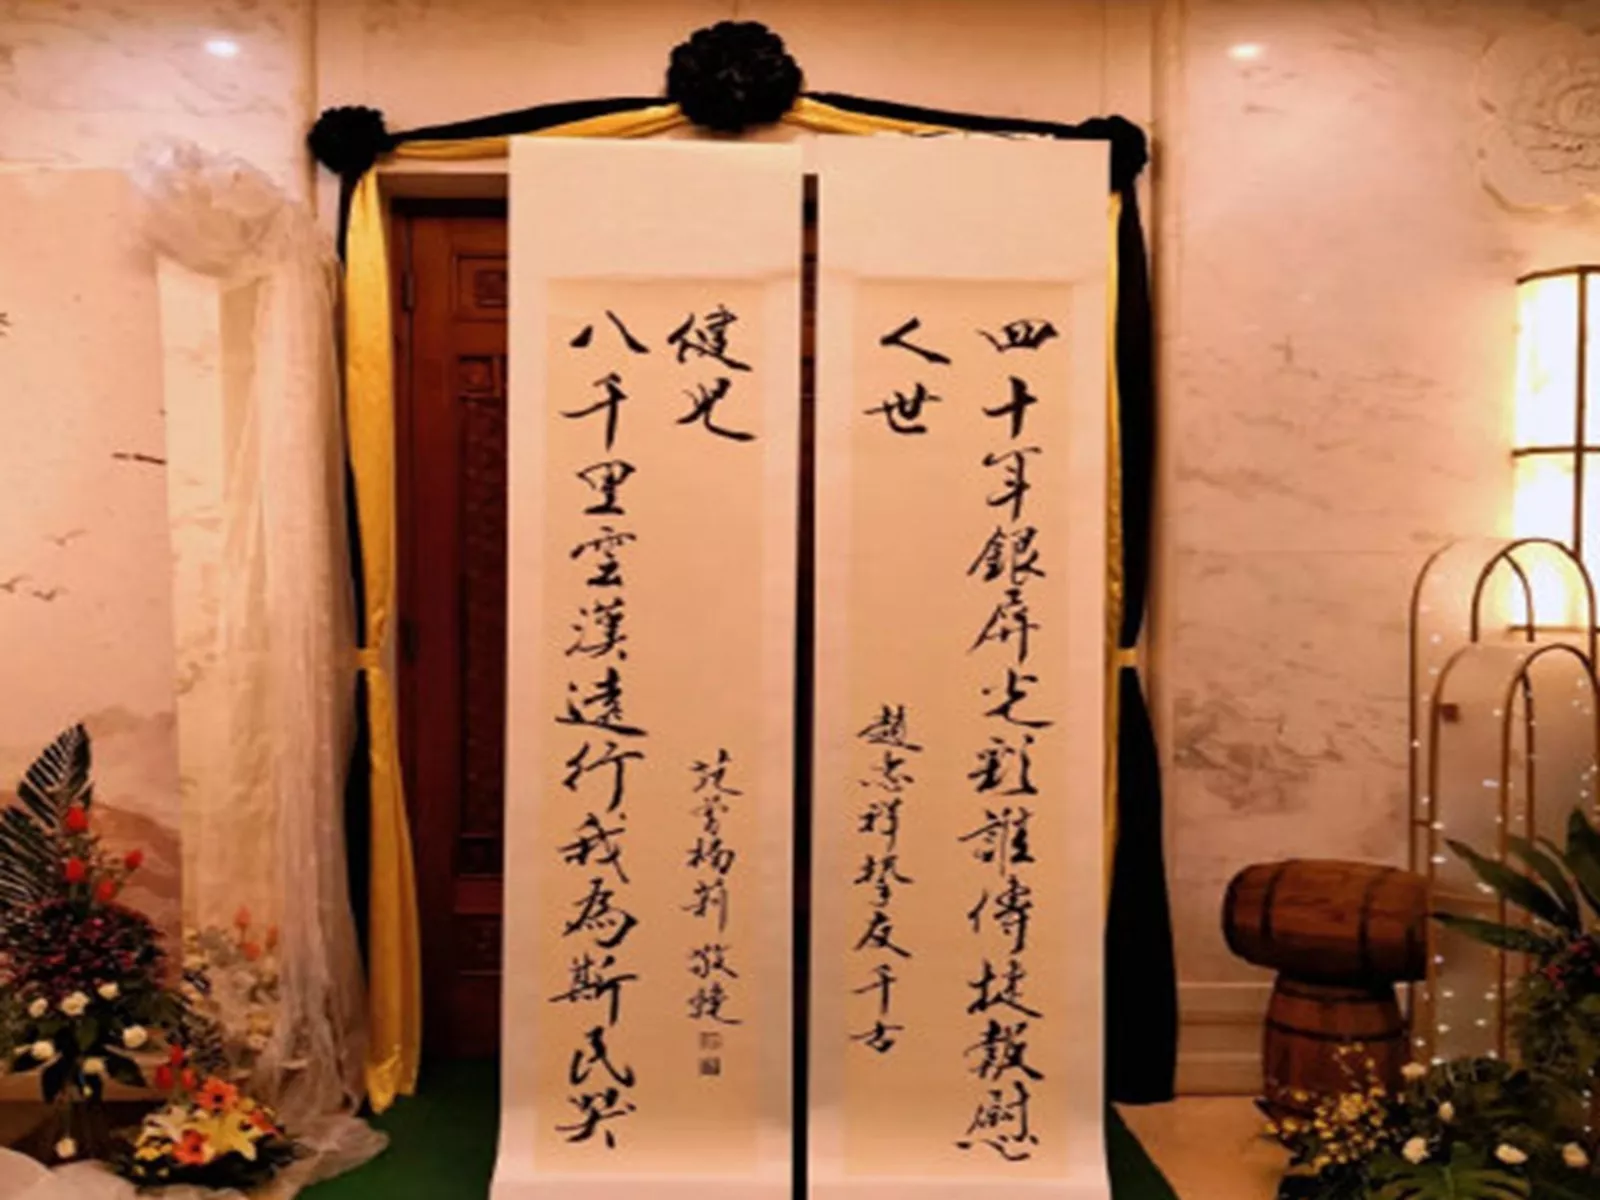 四十年銀屏光彩誰傳捷報慰
人世
趙忠祥摯友千古
八千里雲漢遠行我為斯民哭
健兒
范曾楊莉敬輓